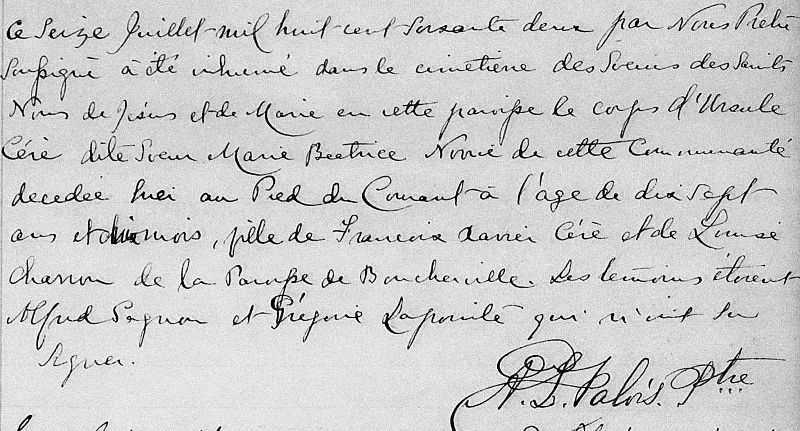 Ce Seize Juillet mil huit cent soixante deux par Nous Prêtre
Soussigné a été inhumé dans le cimetière des Soeurs des Saints
Noms de Jésus et de Marie en cette paroisse le corps d'Ursule
Céré dite Soeur Marie Beatrice Novice de cette Communauté
decedée hier au Pied du Courant à l'âge de dix sept
ans et mois, fille de Francois Xavier Céré et de Louise
Charron de la Paroisse de Boucherville. Les temoins étoient
Alfred et Grégoire Lapointe qui n'ont su
signer.
Ptre